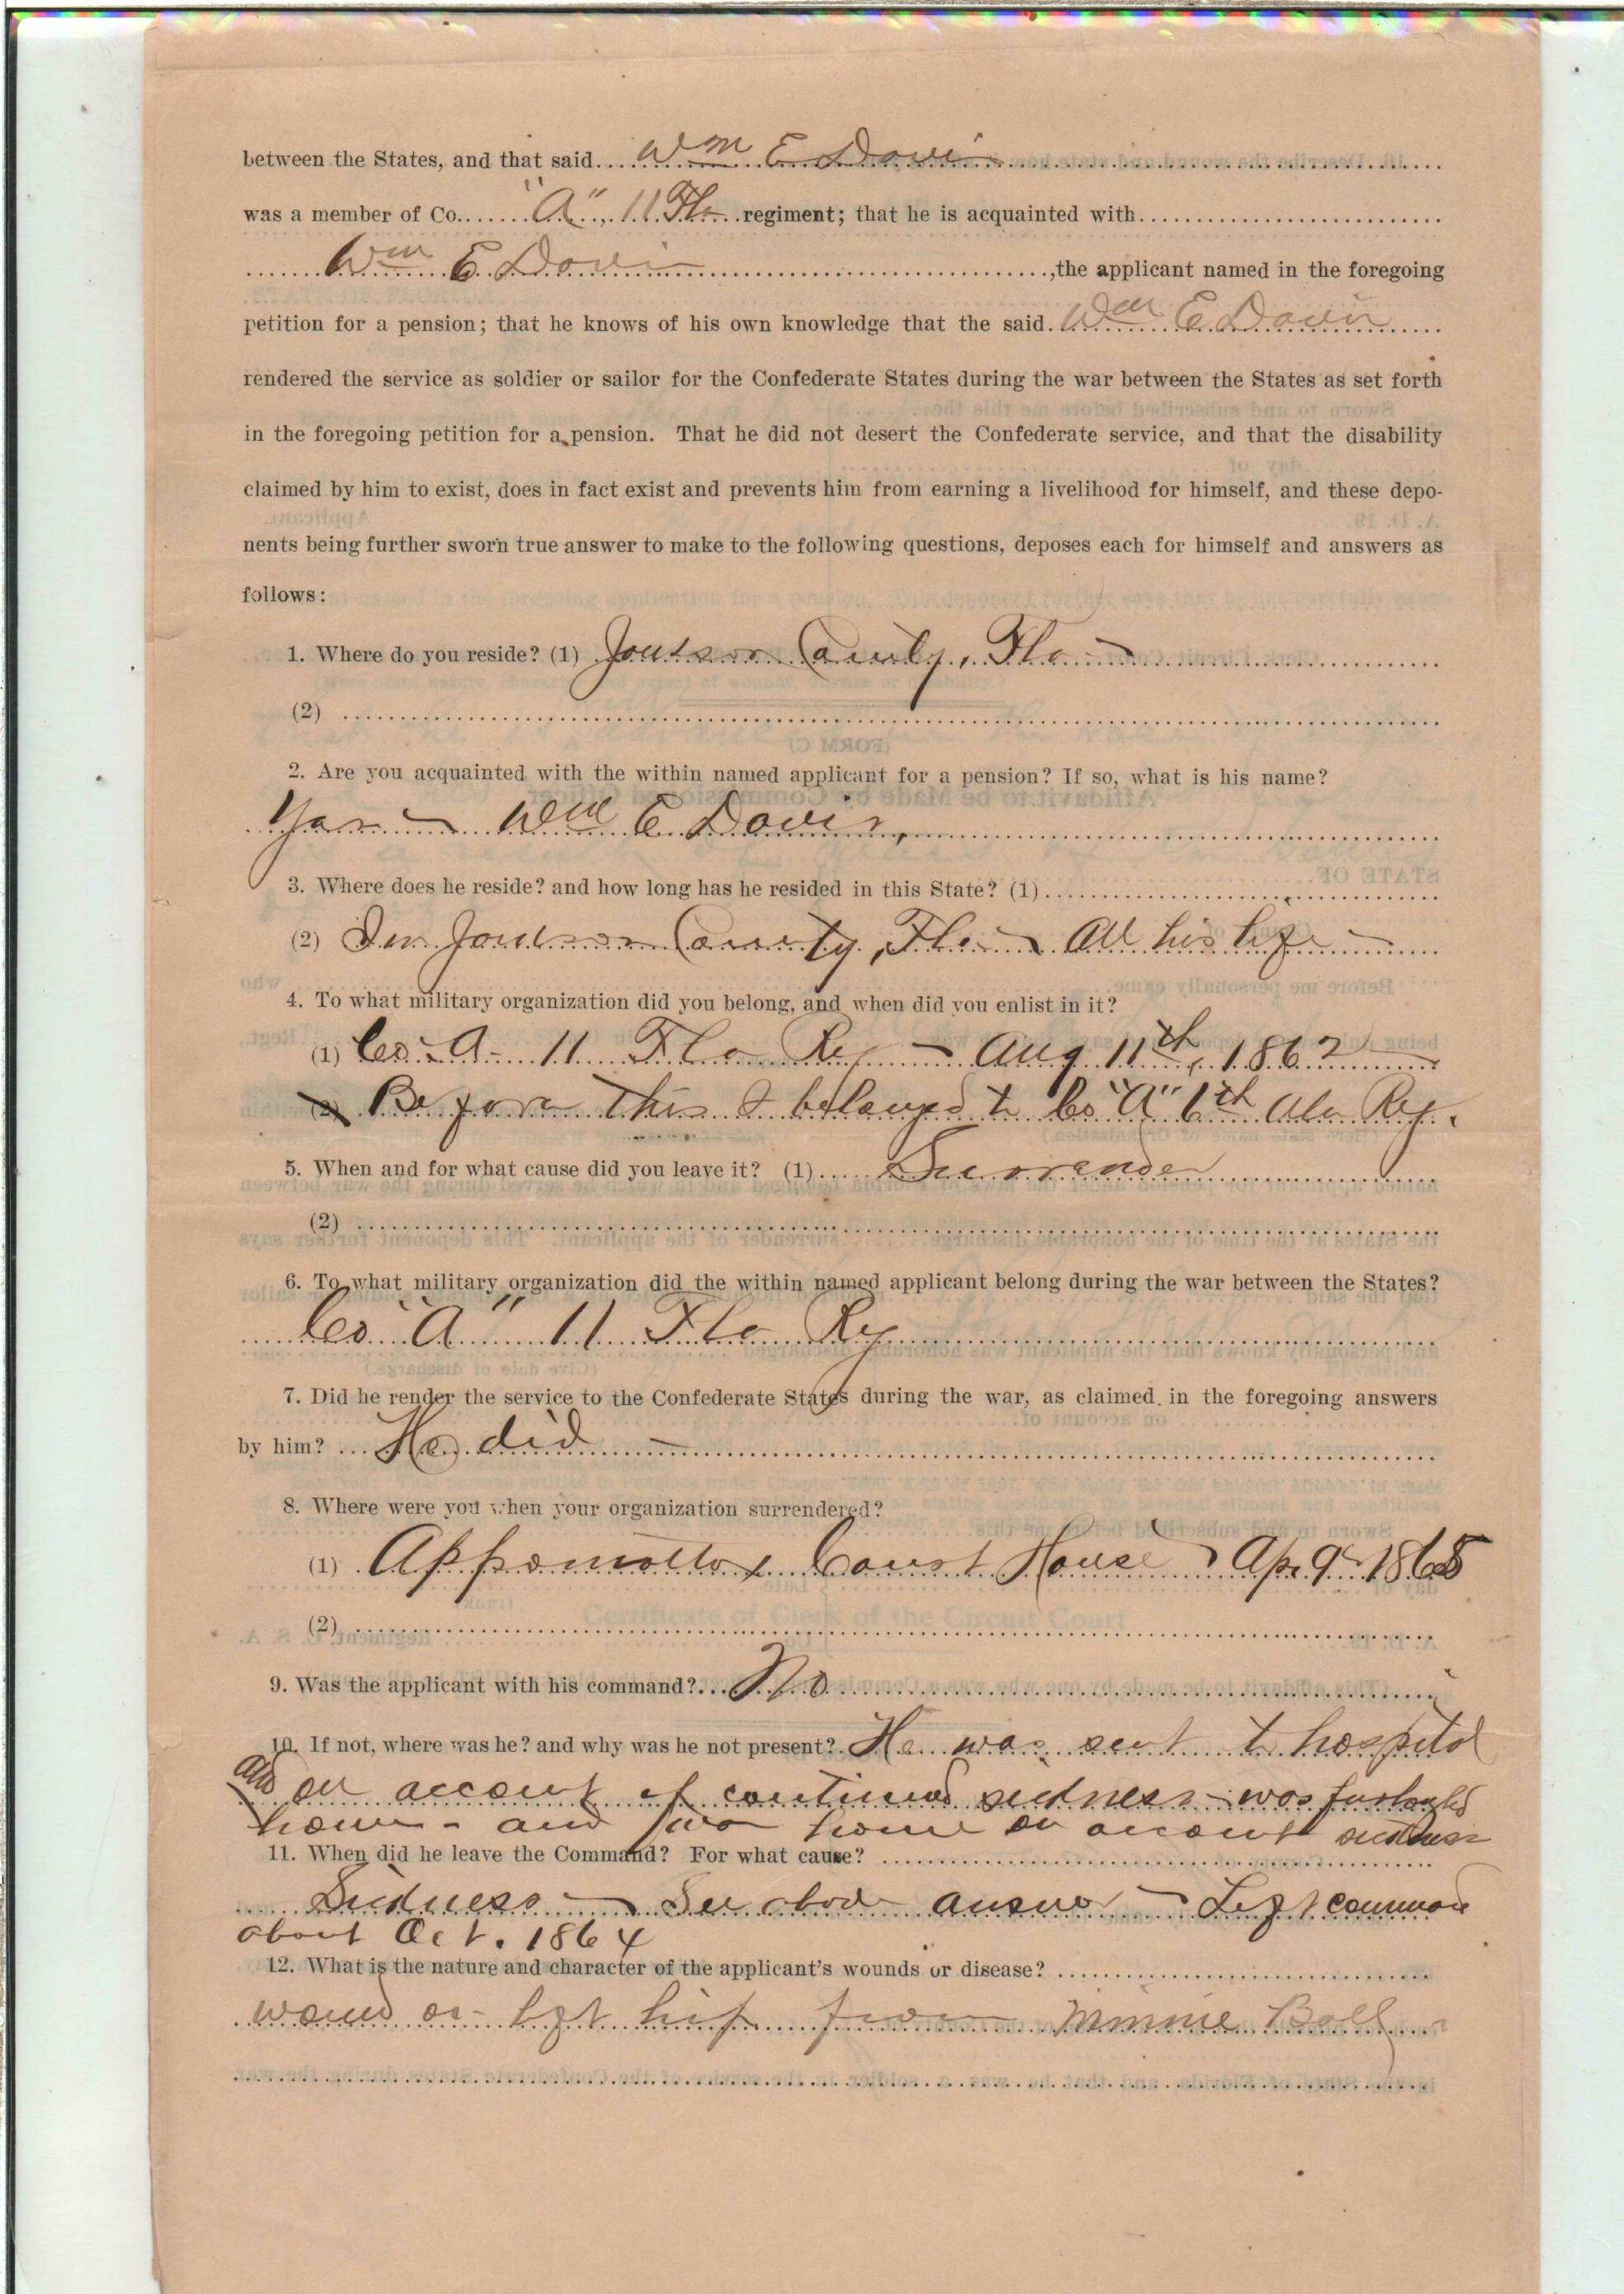 between the States, and that said Wm E Davis
was a member of Co. "A", 11 Fla regiment; that he is acquainted with
Wm E Davis, the applicant named in the foregoing
petition for a pension; that he knows of his own knowledge that the said Wm E Davis
rendered the service as soldier or sailor for the Confederate States during the war between the States as set forth
in the foregoing petition for a pension. That he did not desert the Confederate service, and that the disability
claimed by him to exist, does in fact exist and prevents him from earning a livelihood for himself, and these depo-
nents being further sworn true answer to make to the following questions, deposes each for himself and answers as
follows:
1. Where do you reside? (1) Jackson County, Fla
(2)
2. Are you acquainted with the within named applicant for a pension? If so, what is his name?
Yes - Wm E Davis,
3. Where does he reside? and how long has he resided in this State? (1)
(2) In Jackson County, Fla - All his life -
4. To what military organization did you belong, and when did you enlist in it?
(1) Co. A - 11 Fla Reg - Aug 11th, 1862
(2) Before this I belonged to Co "A" 6th Ala Reg.
5. When and for what cause did you leave it? (1) Surrender
(2)
6. To what military organization did the within named applicant belong during the war between the States?
Co "A" 11 Fla Reg
7. Did he render the service to the Confederate States during the war, as claimed in the foregoing answers
by him? He did -
8. Where were you when your organization surrendered?
(1) Appomattox Court House Apr 9 - 1865
(2)
9. Was the applicant with his command? No
10. If not, where was he? and why was he not present? He was sent to hospital
and on account of continued sickness - was furloughed
home - and was home on account sickness
11. When did he leave the Command? For what cause?
Sickness - See above answer - Left command
about Oct. 1864
12. What is the nature and character of the applicant's wounds or disease?
wound on left hip from Minnie Ball